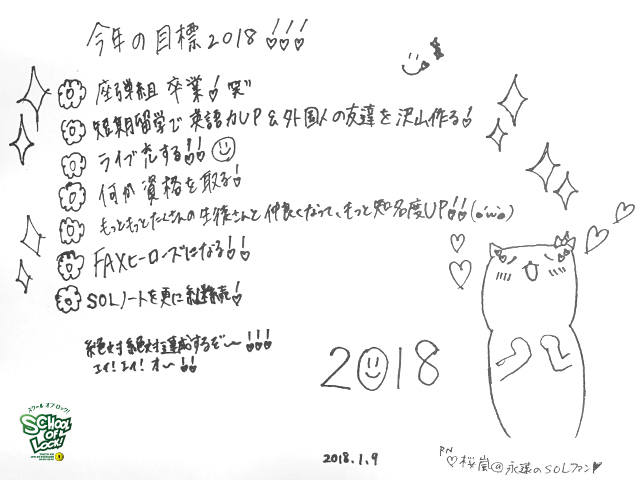 今年の目標2018!!!
座弾組 卒業! 笑
短期留学で 英語力UP & 外国人の友達を沢山作る!
ライブ充する!!
何か資格を取る!
もっともっとたくさんの生徒さんと仲良くなって、もっと知名度UP!!(o'ω'o)
FAXヒーローズになる!!
SOLノートを更に継続!
絶対絶対達成するぞ〜!!!
エイ!エイ!オ〜!!
2018
スクール オブ ロック!
SCHOOL OF LOCK!
2018.1.9
PN ♡桜嵐@永遠のSOLファン♥